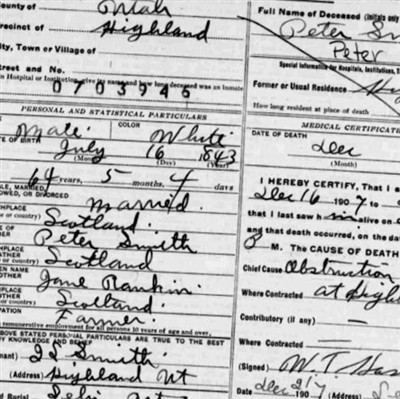 County of Utah
Precinct of Highland
City, Town or Village of
Street and No.
In Hospital or Institution, give its name and how long deceased was an inmate
0703945
PERSONAL AND STATISTICAL PARTICULARS
Male. COLOR White
DATE OF BIRTH July 16 1843
(Month) (Day) (Year)
64 years, 5 months, 4 days
SINGLE, MARRIED, WIDOWED, OR DIVORCED Married.
BIRTHPLACE (or country) Scotland.
NAME OF FATHER Peter Smith
BIRTHPLACE FATHER (or country) Scotland
MAIDEN NAME MOTHER Jane Rankin.
BIRTHPLACE MOTHER (or country) Scotland
OCCUPATION Farmer.
remunerative employment for all persons 10 years of age and over.
ABOVE STATED PERSONAL PARTICULARS ARE TRUE TO THE BEST
MY KNOWLEDGE AND BELIEF
(Informant) Smith.
(Address) Highland Ut
Burial
Full Name of Deceased (Initials only
Peter
Peter
Special Information for Hospitals, Institutions, T
Former or Usual Residence
How long resident at place of death
MEDICAL CERTIFICATE
DATE OF DEATH Dec
(Month)
I HEREBY CERTIFY, That I a
Dec 16 1907 to
that I last saw him alive on
and that death occurred, on the da
8 M. The CAUSE OF DEATH
Chief Cause Obstruction
Where Contracted at Highl
Contributory (if any) —
Where Contracted —
(Signed) W. T. Has
Date Dec 21 1907 (Address)